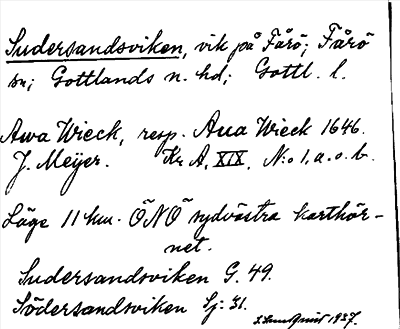 Sudersandsviken, vik på Fårö; Fårö
sn; Gottlands n. hd; Gottl. l.
Awa Wieck, resp. Aua Wieck 1646.
J. Meÿer. Kr A, XIX, N:o 1, a.o.b.
Läge 11 km. ÖNÖ sydvästra karthör-
net.
Sudersandsviken G. 49.
Södersandsviken Sj: 31.
1937.